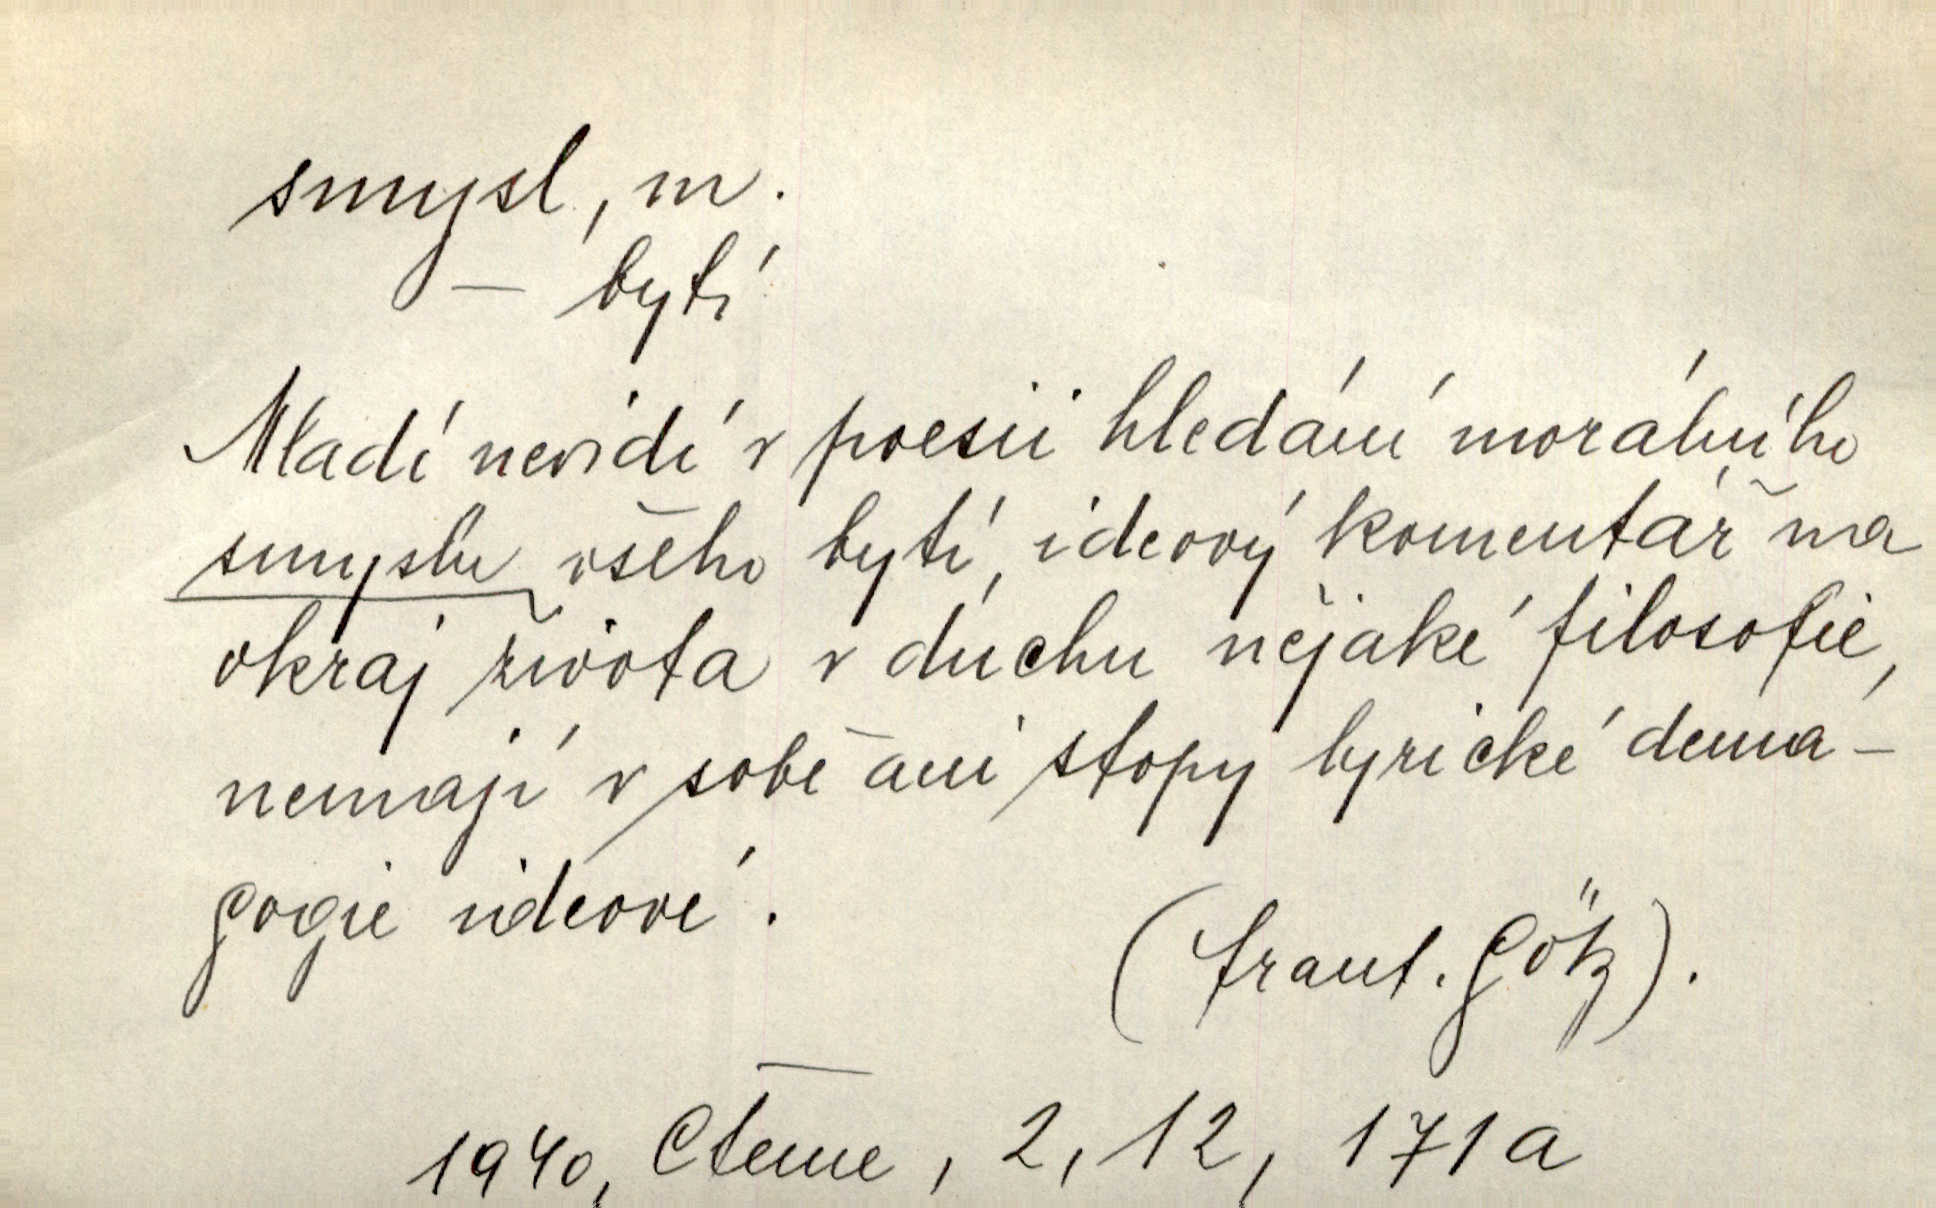 smysl, m.
— bytí
Mladí nevidí v poesii hledání morálního
smyslu všeho bytí, ideový komentář na
okraj života v duchu nějaké filosofie,
nemají v sobě ani stopy lyrické dema-
gogie ideové.
(Frant. Götz).
1940, Čteme, 2, 12, 171a